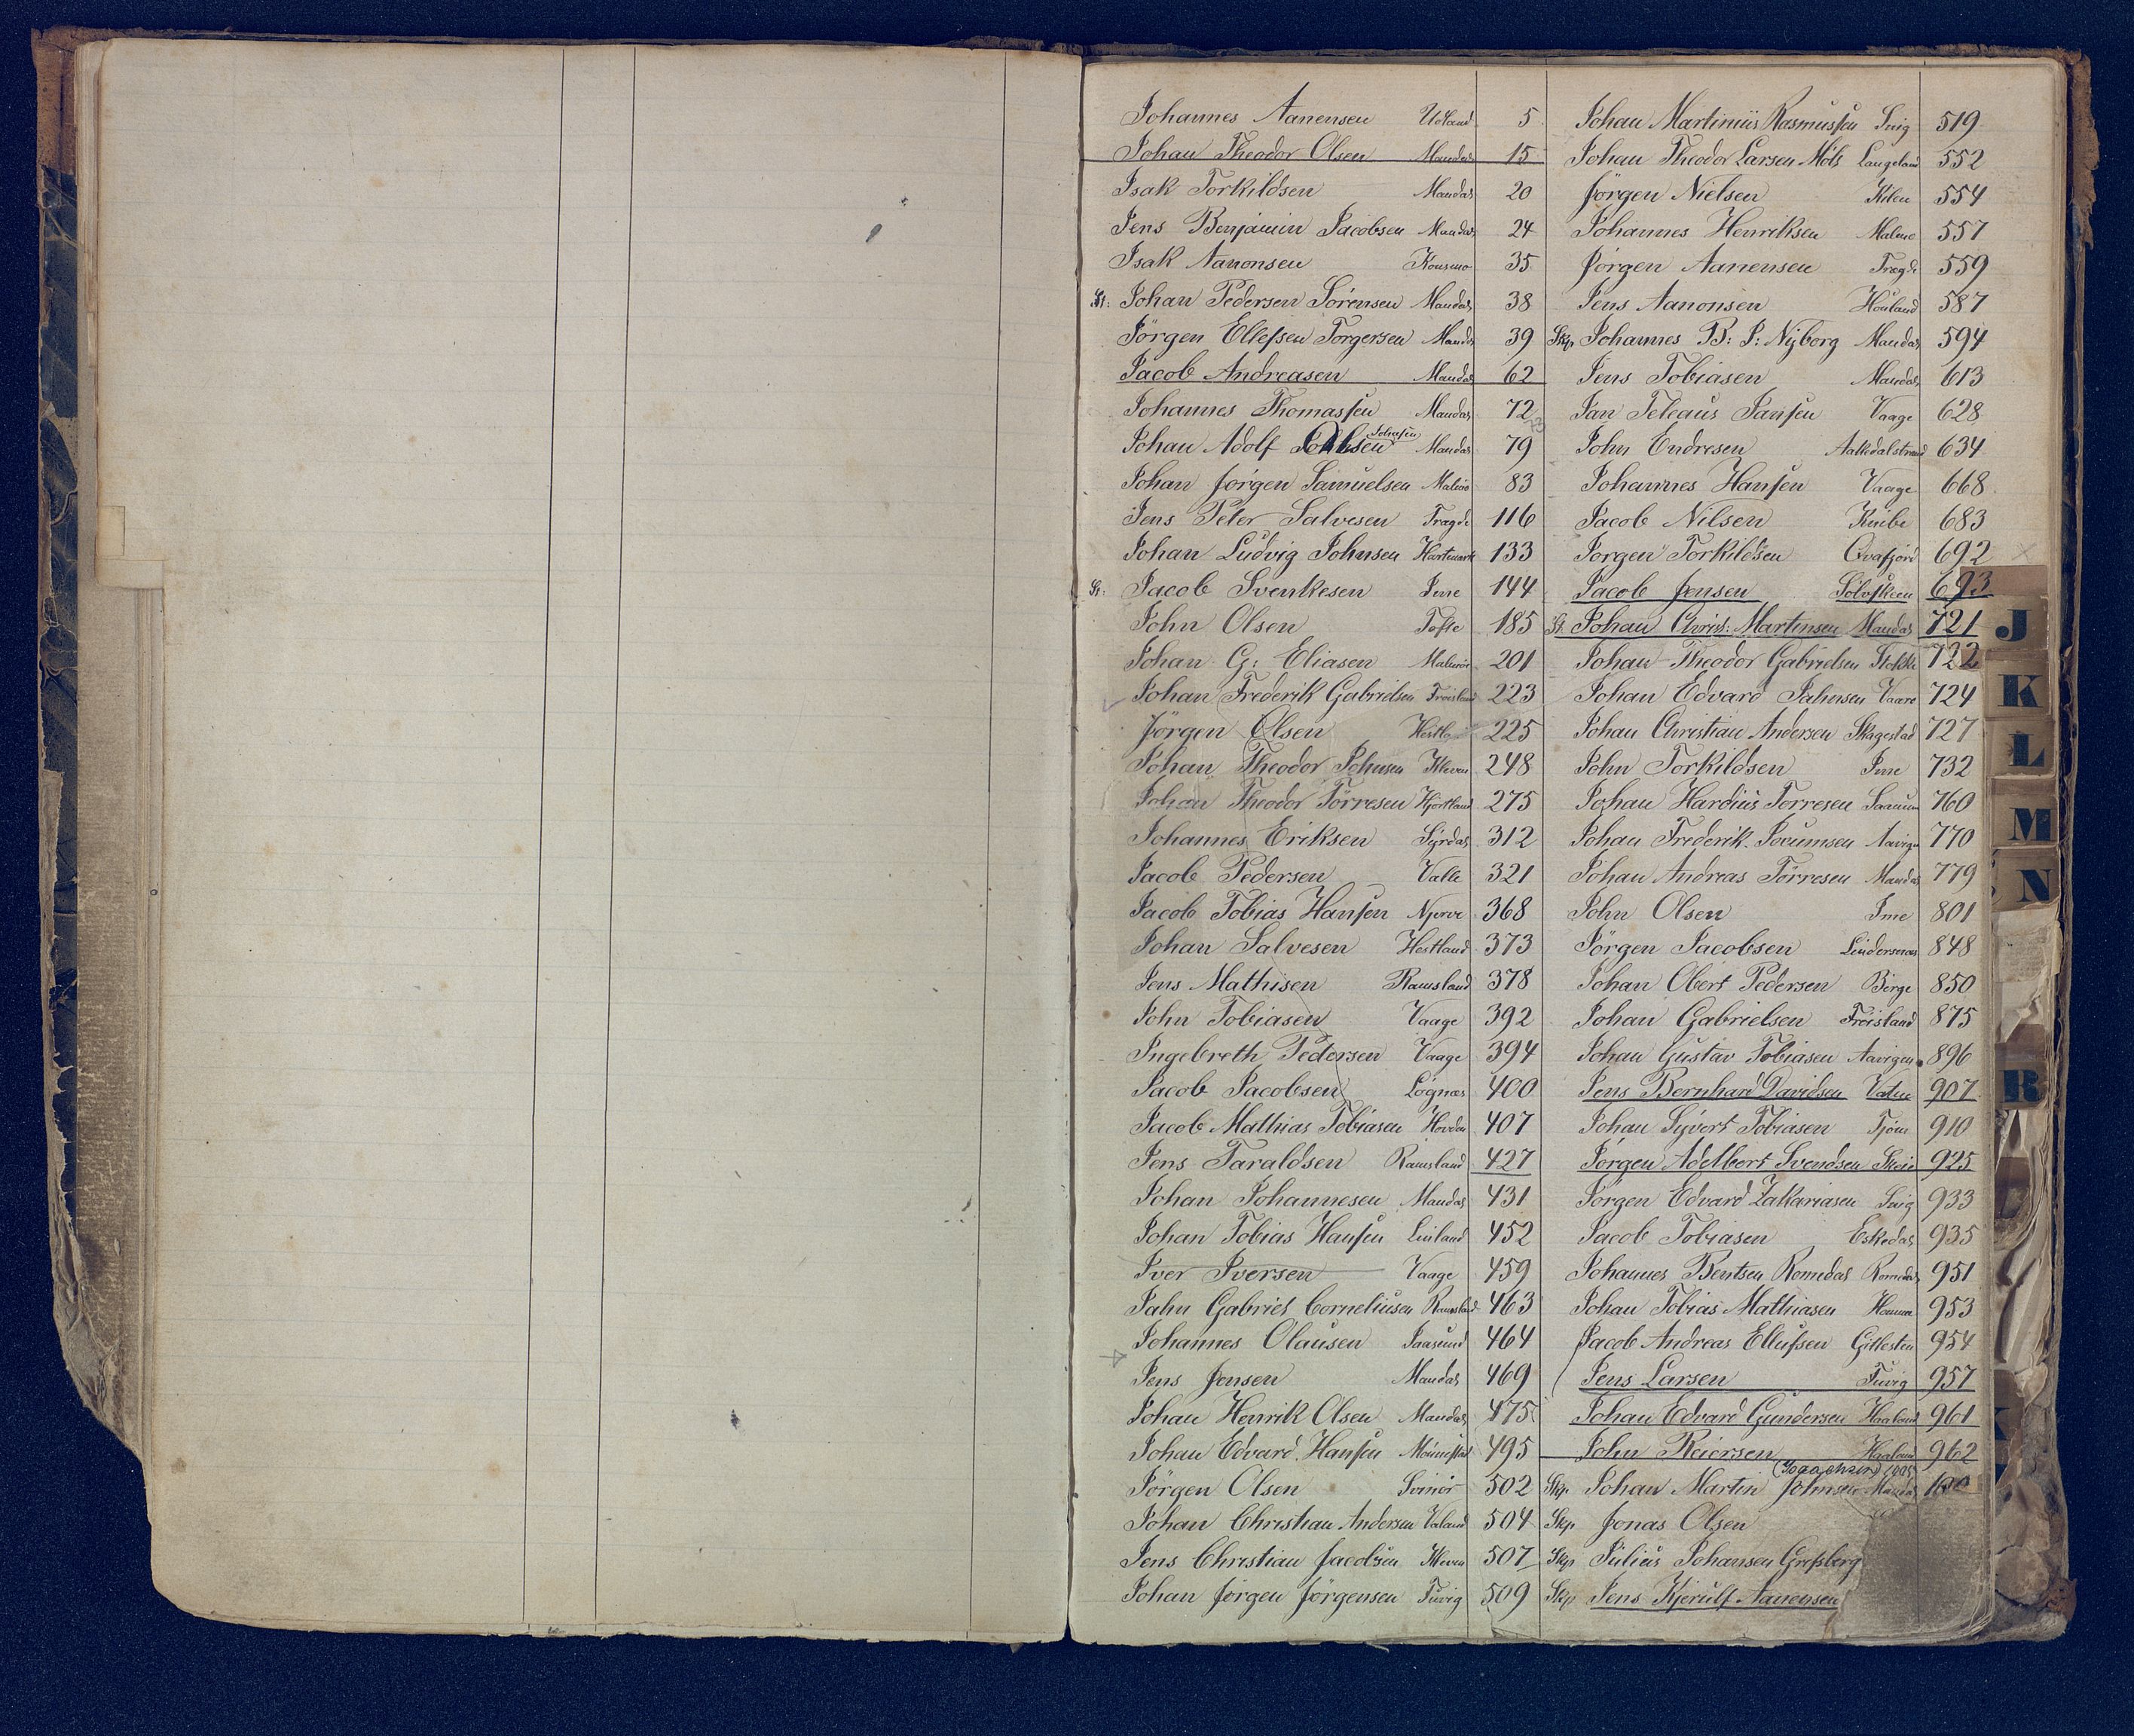 Johannes Aanensen Udland 5
Johan Theodor Olsen Mandal 15
Isak Torkildsen Mandal 20
Jens Benjamin Jacobsen Mandal 24
Isak Aanonsen Konsmo 35
St: Johan Pedersen Sörensen Mandal 38
Jörgen Ellefsen Torgersen Mandal 39
Jacob Andreasen Mandal 62
Johannes Thomassen Mandal 72
Johan Adolf Mandal 79
Johan Jörgen Samuelsen Malmö 83
Jens Peter Salvesen Trægde 116
Johan Ludvig Johnsen Hartmark 133
St: Jacob Svenkesen Ime 144
John Olsen Tofte 185
Johan G: Eliasen Malmö 201
Johan Frederik Gabrielsen Fröisland 223
Jörgen Olsen 225
Johan Theodor Johnsen Kleven 248
Johan Theodor Törresen Hjortland 275
Johannes Eriksen Syrdal 312
Jacob Pedersen Valle 321
Jacob Tobias Hansen Njerve 368
Johan Salvesen Hestland 373
Jens Mathisen Ramsland 378
John Tobiasen Vaage 392
Ingebreth Pedersen Vaage 394
Jacob Jacobsen Lögnæs 400
Jacob Mathias Tobiasen Hovden 407
Jens Taraldsen Ramsland 427
Johan Johannesen Mandal 431
Johan Tobias Hansen Linland 452
Iver Iversen Vaage 459
Jahn Gabriel Corneliusen Ramsland 463
Johannes Olausen 464
Jens Jensen Mandal 469
Johan Henrik Olsen Mandal 475
Johan Edvard Hansen 495
Jörgen Olsen Svinör 502
Johan Christian Andersen Valand 504
Jens Christian Jacobsen Kleven 507
Johan Jörgen Jörgensen Tuvig 509
Johan Martinius Rasmussen Snig 519
Johan Theodor Larsen Möls Langeland 552
Jörgen Nielsen Kilen 554
Johannes Henriksen Malmö 557
Jörgen Aanensen Trægde 559
Jens Aanonsen Houland 587
Skp. Johannes B: P: Nyborg Mandal 594
Jens Tobiasen Mandal 613
Jan Teleaus Jansen Vaage 628
John Endresen Aakedalstrand 634
Johannes Hansen Vaage 668
Jacob Nilsen Knibe 683
Jörgen Torkildsen Qvafjord 692
Jacob Jensen 693
St. Johan Christ: Martinsen Mandal 721
Johan Theodor Gabrielsen 722
Johan Edvard Jahnsen 724
Johan Christian Andersen Skagestad 727
John Torkildsen Ime 732
Johan Hardius Torresen 760
Johan Frederik Aavigen 770
Johan Andreas Törresen Mandal 779
John Olsen Ime 801
Jörgen Jacobsen Lindersnæs 848
Johan Obert Pedersen Birge 850
Johan Gabrielsen Fröisland 875
Johan Gustav Tobiasen Aavigen 896
Jens Bernhard Davidsen Vatne 907
Johan Syvert Tobiasen Tjöm 910
Jörgen Adelbert Svendsen Skeie 925
Jörgen Edvard Zakariasen Snig 933
Jacob Tobiasen Eskedal 935
Johannes Bentsen Romedal Romedal 951
Johan Tobias Mathiasen Homme 953
Jacob Andreas Ellefsen Gillesten 954
Jens Larsen Tuvig 957
Johan Edvard Gundersen Haaland 961
John Reiersen Haaland 962
(Joaachsen) 1005
Skp. Johan Martin Johnsen Mandal
Skp. Jonas Olsen
Skp Julius Johansen Grefsberg
Skp Jens Kjerulf Aanensen
J
K
L
M
N
R